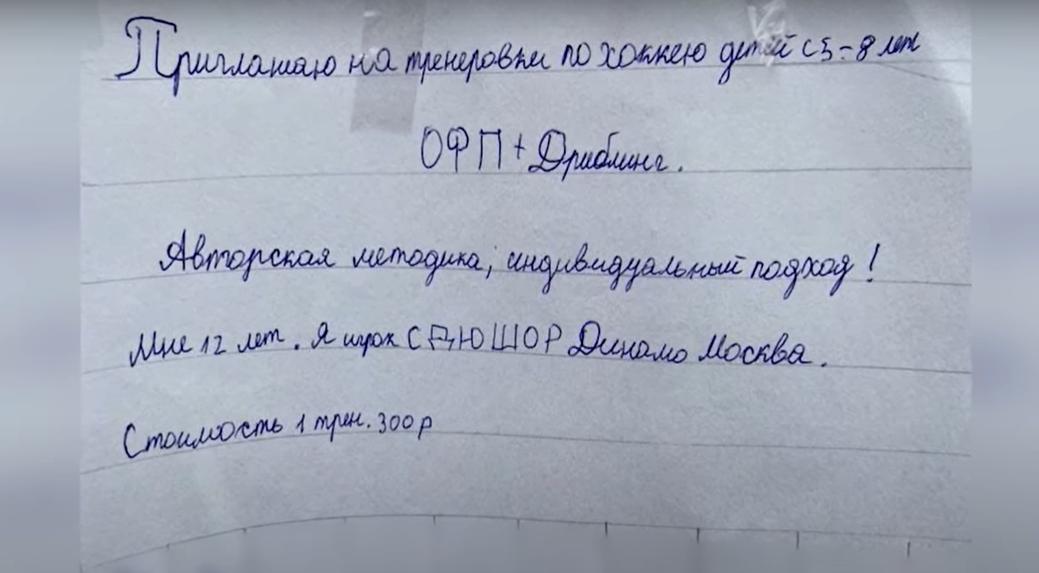 Приглашаю на тренировки по хоккею детей с 5-8 лет
ОФП + Дриблинг.
Авторская методика, индивидуальный подход!
Мне 12 лет. Я игрок СДЮШОР Динамо Москва.
Стоимость 1 трен. 300 р